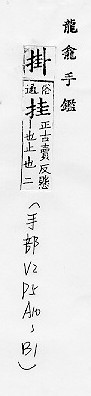 龍龕手鑑
掛俗通挂正古賣反懸
丨也止也二
(手部 V2 P5 A10、B1)